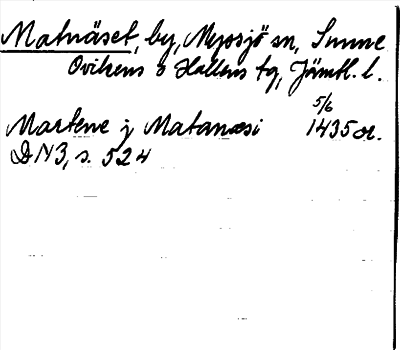 Matnäset, by, Myssjö sn, Sunne
Ovikens o Hallens tg, Jämtl. l.
5/6
Martene j Matanæsi 1435 or.
DN 3, s. 524